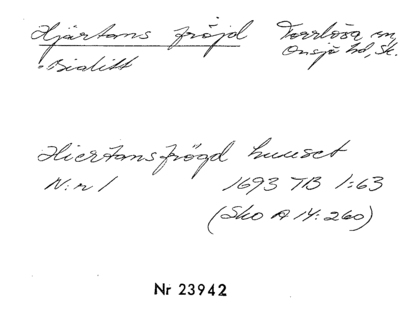 Hjärtans fröjd Torrlösa sn,
Onsjö hd, Sk.
Bialitt
Hiertansfrögd huuset
N:r 1 1693 TB 1:63
(Sko A 14: 260)
Nr 23942